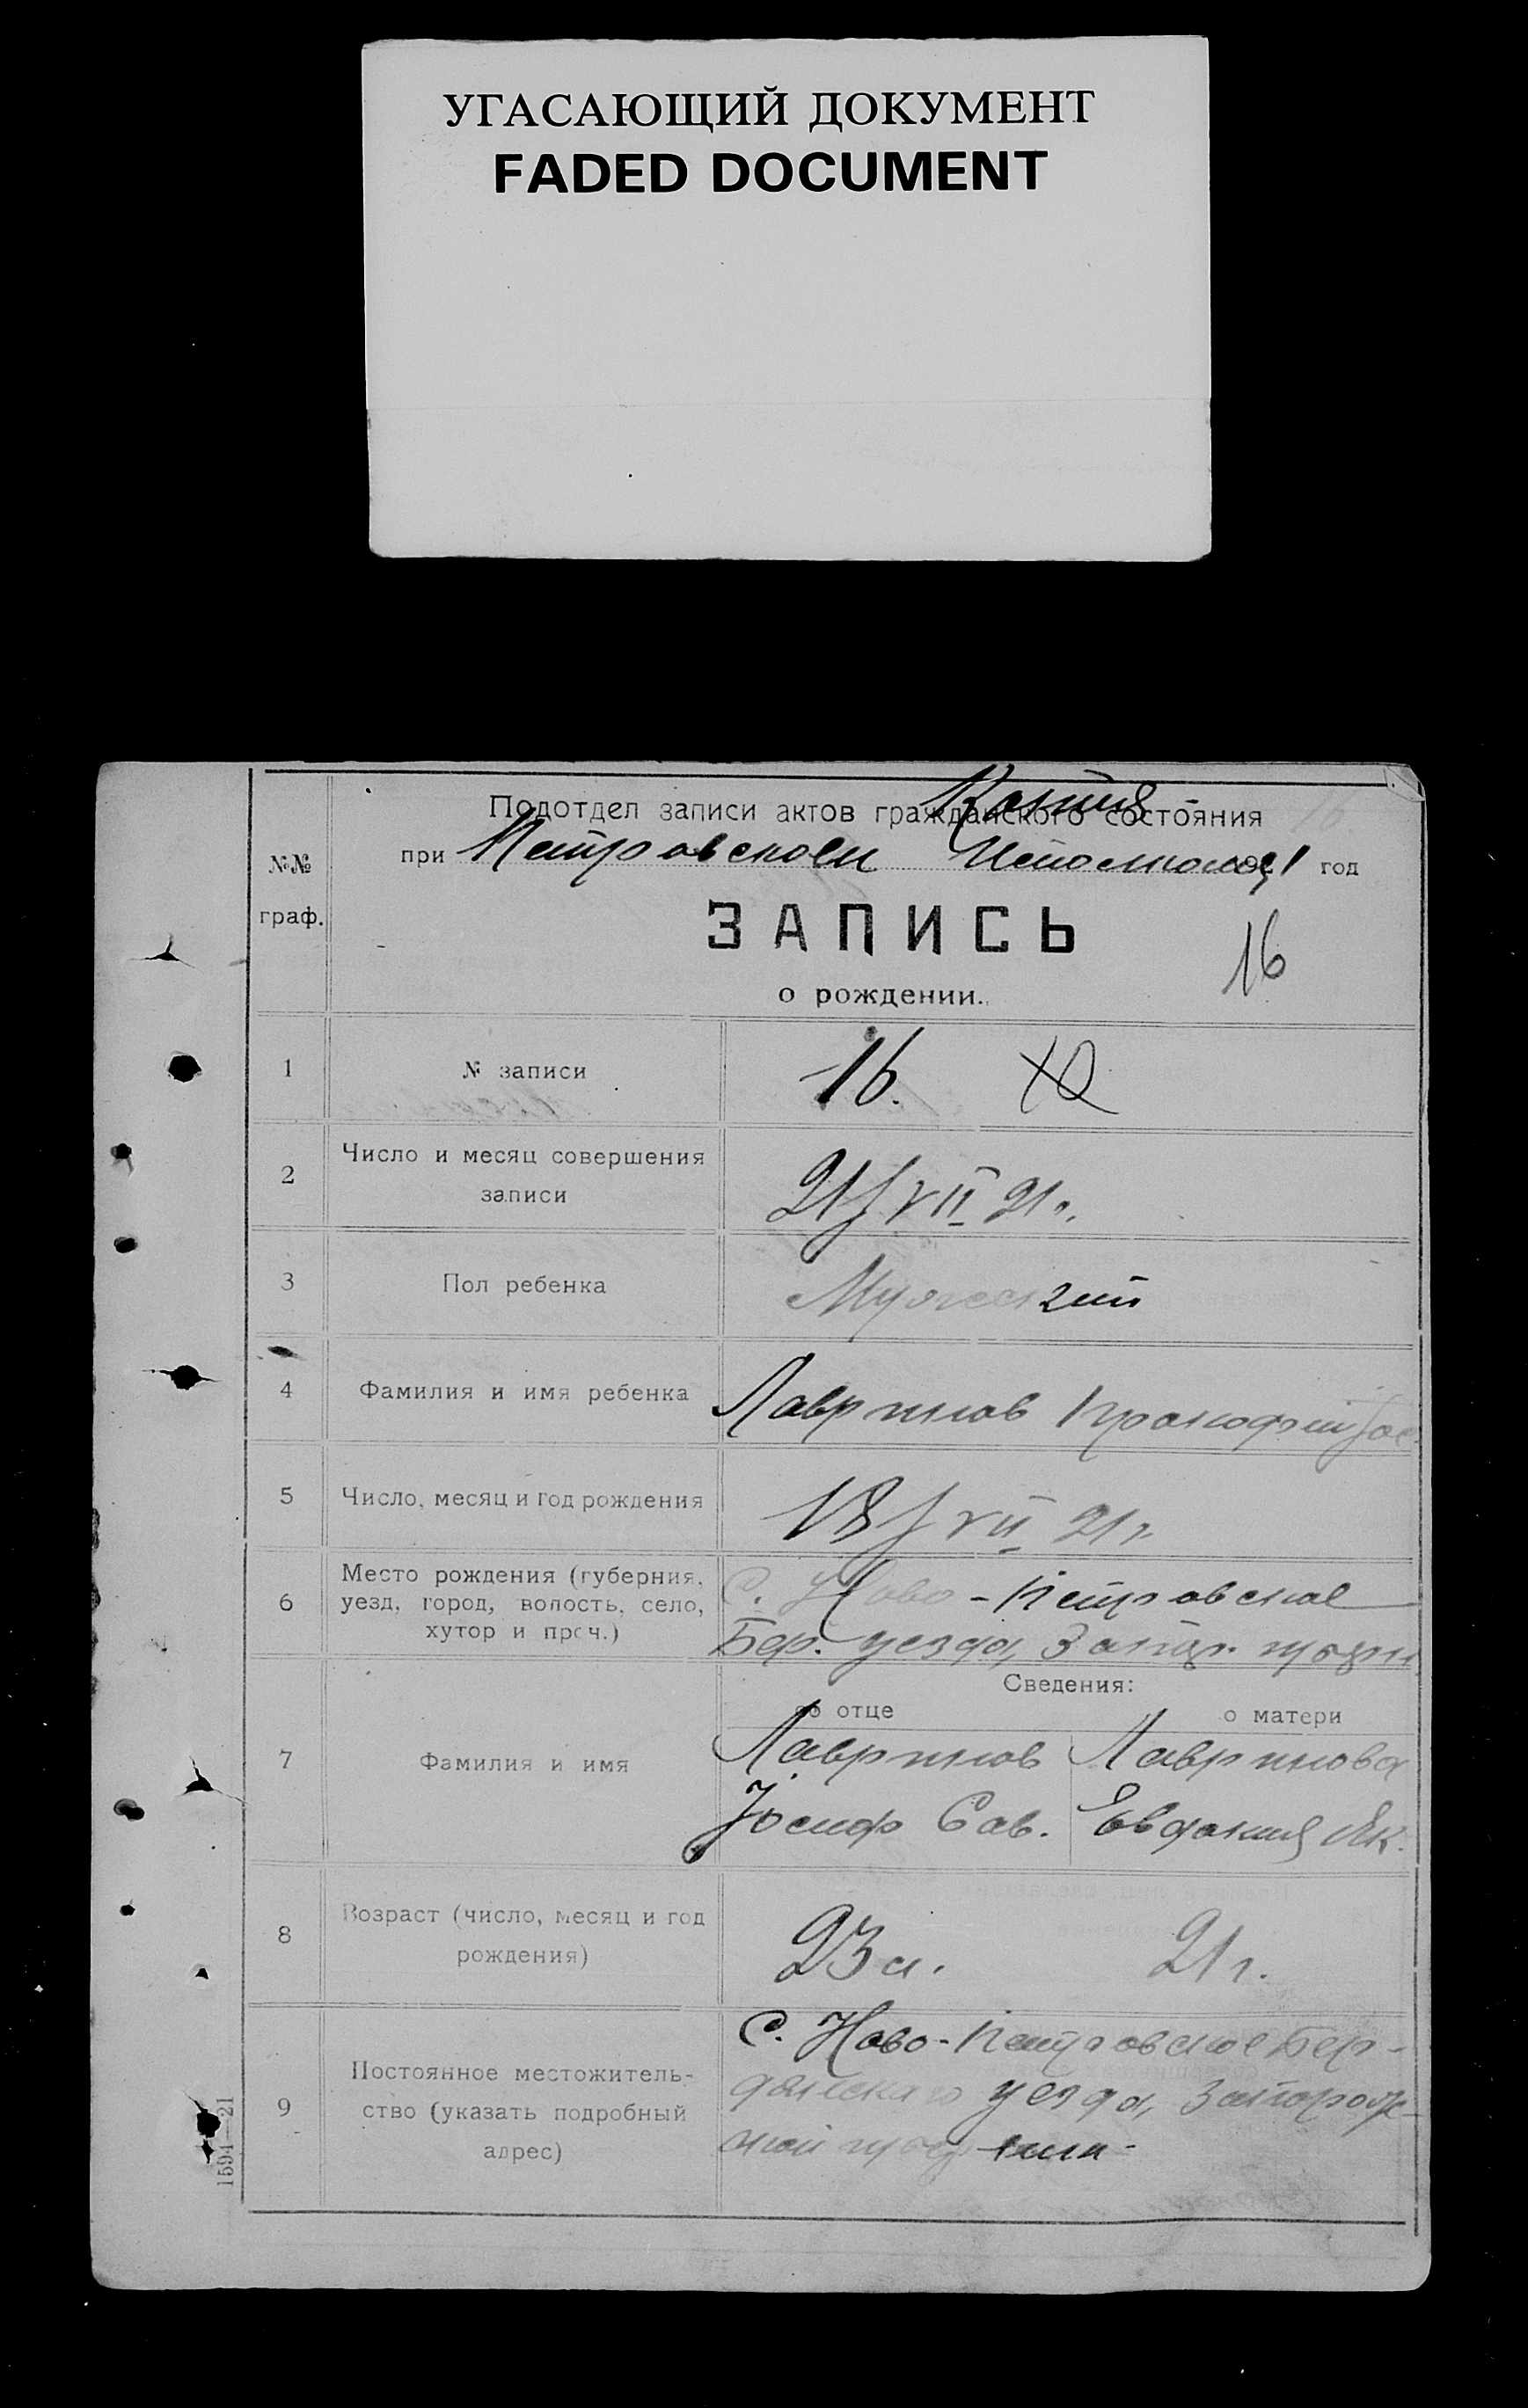 УГАСАЮЩИЙ ДОКУМЕНТ
FADED DOCUMENT
Копия
Подотдел записи актов гражданского состояния
№№ граф.
при Петровском Исполкоме 1 год
ЗАПИСЬ
16
о рождении.
1 № записи 16.
2 Число и месяц совершения
записи
21/VII 21 г.
3 Пол ребенка Мужеский
4 Фамилия и имя ребенка Лавринов Прокофий Іос.
5 Число, месяц и год рождения 18/VII 21 г.
6 Место рождения (губерния,
уезд, город, волость, село,
хутор и проч.)
С. Ново-Петровское
Бер. уезда, Запор. губерн.
Сведения:
об отце о матери
7 Фамилия и имя
Лавринов Лавринова
Іосиф Сав. Евдокия Як.
8 Возраст (число, месяц и год
рождения)
23 л. 21 г.
9 Постоянное местожитель-
ство (указать подробный
адрес)
С. Ново-Петровское Бер-
дянскаго уезда, Запорож-
ной губернии
1594—21